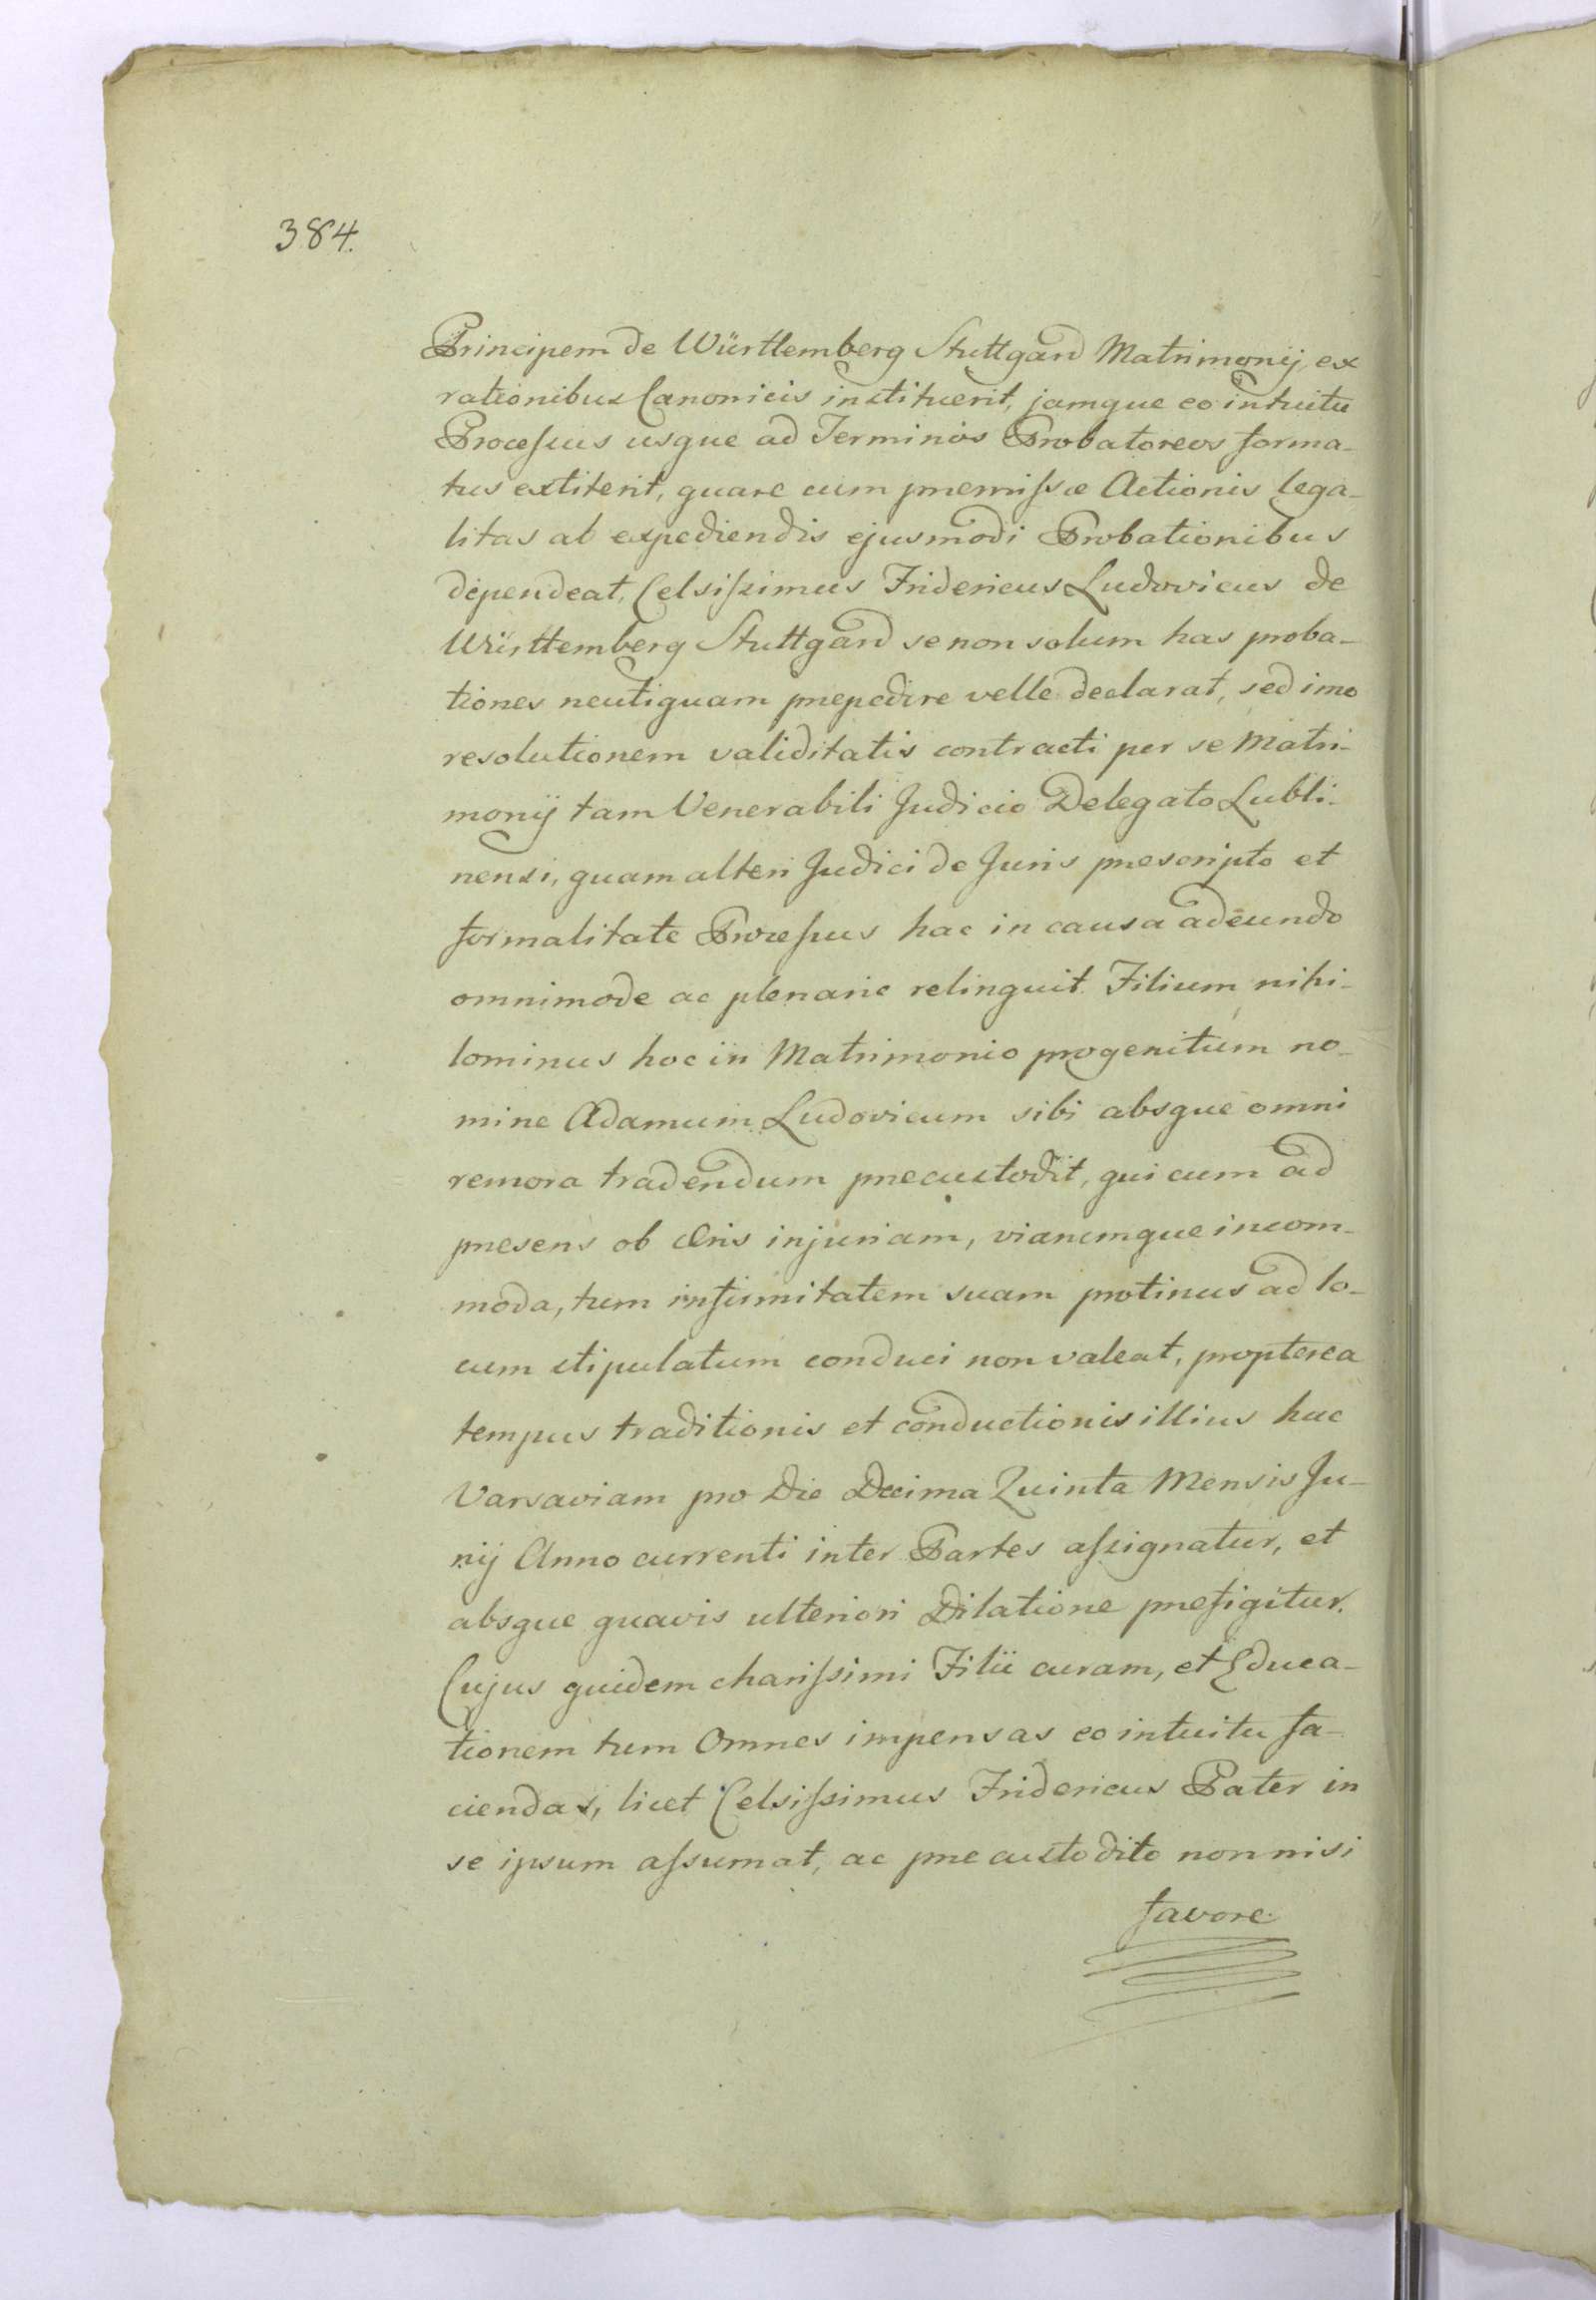 384.
Principem de Württemberg Stuttgard Matrimonij, ex
rationibus Canonicis instituerit, jamque eo intuitu
Processus usque ad Terminos Probatoreos forma-
tus extiterit, quare cum premissæ Actionis lega-
litas ab expediendis ejusmodi Probationibus
dependeat, Celsissimus Fridericus Ludovicus de
Württemberg Stuttgard se non solum has proba-
tiones neutiquam prepedire velle declarat, sed imo
resolutionem validitatis contracti per se Matri-
monij tam Venerabili Judicio Delegato Lubli-
nensi, quam alteri Judici de Juris prescripto et
formalitate Processus hac in causa adeundo
omnimode ac plenarie relinquit. Filium nihi-
lominus hoc in Matrimonio progenitum no-
mine Adamum Ludovicum sibi absque omni
remora tradendum precustodit, qui cum ad
presens ob æris injuriam, viarumque incom-
moda, tum infirmitatem suam protinus ad lo-
cum stipulatum conduci non valeat, propterea
tempus traditionis et conductionis illius huc
Varsaviam pro Die Decima Quinta Mensis Ju-
nij Anno currenti inter Partes assignatur, et
absque quavis ulteriori Dilatione prefigitur.
Cujus quidem charissimi Filii curam, et Educa-
tionem tum Omnes impensas eo intuitu fa-
ciendas, licet Celsissimus Fridericus Pater in
se ipsum assumat, ac precustodito non nisi
favore